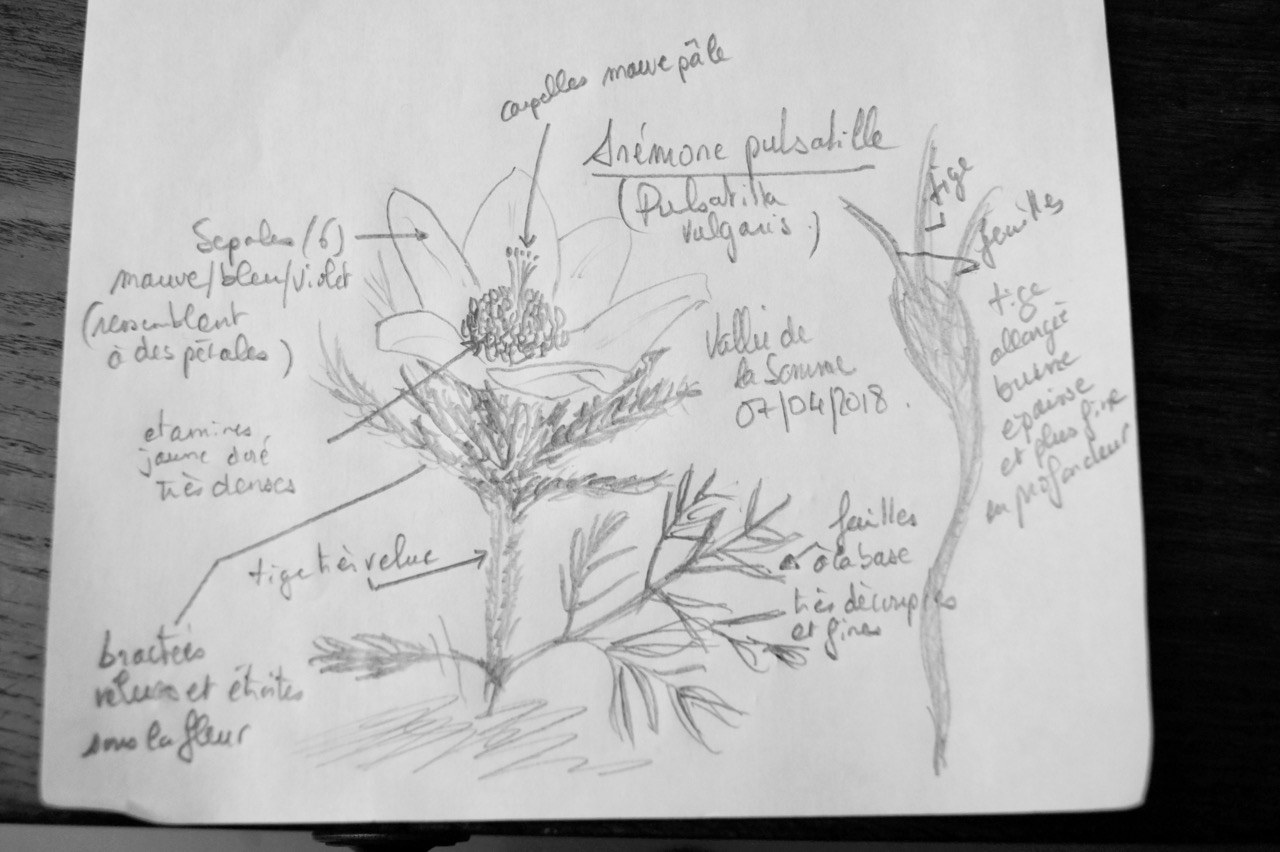 carpelles mauve pâle
Anémone pulsatille
(Pulsatilla
vulgaris.)
Sepales (6)
mauve/bleu/violet
(ressemblent
à des pétales)
etamines
jaune doré
très denses
tige très velue
bractées
velues et étroites
sous la fleur
Vallée de
la Somme
07/04/2018.
feuilles
à la base
très découpées
et fines
tige
feuilles
tige
allongée
brune
epaisse
et plus fine
en profondeur